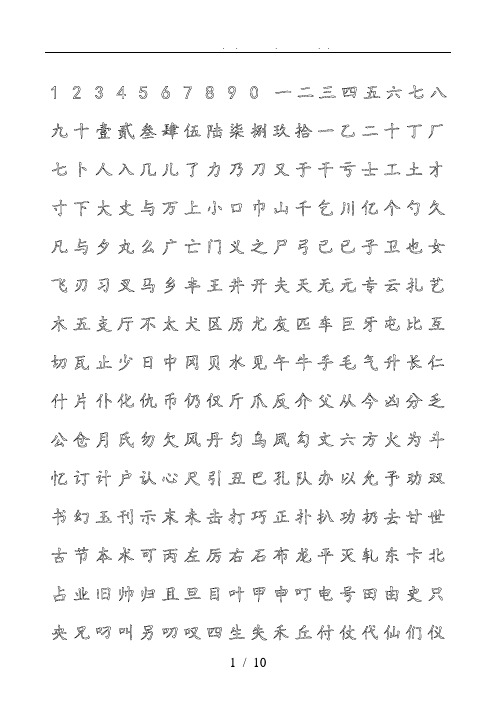 1 2 3 4 5 6 7 8 9 0 一 二 三 四 五 六 七 八
九 十 壹 贰 叁 肆 伍 陆 柒 捌 玖 拾 一 乙 二 十 丁 厂
七 卜 人 入 几 儿 了 力 乃 刀 又 于 干 亏 士 工 土 才
寸 下 大 丈 与 万 上 小 口 巾 山 千 乞 川 亿 个 勺 久
凡 与 夕 丸 么 广 亡 门 义 之 尸 弓 己 已 子 卫 也 女
飞 刃 习 叉 马 乡 丰 王 井 开 夫 天 无 元 专 云 扎 艺
木 五 支 厅 不 太 犬 区 历 尤 友 匹 车 巨 牙 屯 比 互
切 瓦 止 少 日 中 冈 贝 水 见 午 牛 手 毛 气 升 长 仁
什 片 仆 化 仇 币 仍 仅 斤 爪 反 介 父 从 今 凶 分 乏
公 仓 月 氏 勿 欠 风 丹 匀 乌 凤 勾 文 六 方 火 为 斗
忆 订 计 户 认 心 尺 引 丑 巴 孔 队 办 以 允 予 劝 双
书 幻 玉 刊 示 末 未 击 打 巧 正 扑 扒 功 扔 去 甘 世
古 节 本 术 可 丙 左 厉 右 石 布 龙 平 灭 轧 东 卡 北
占 业 旧 帅 归 且 旦 目 叶 甲 申 叮 电 号 田 由 史 只
央 兄 叼 叫 另 叨 叹 四 生 失 禾 丘 付 仗 代 仙 们 仪
1 / 10